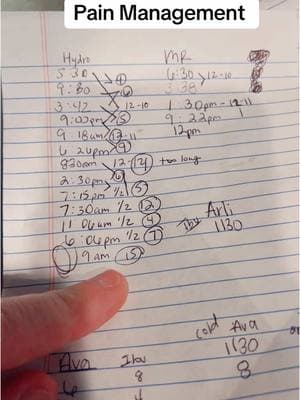 Pain Management
Hydro MR
5:30 6:30 12-10
9:30 3:38
3:42 12-10 1:30pm - 12-11
9:00pm 5 9:22pm
9:18am 12-11 12pm
6:26pm 9
830am 12-14 too long
2:30pm 6
7:15pm 1/2 5
7:30am 1/2 12 Arli
11:06am 1/2 4 Ibu 1130
6:06pm 1/2 7
9am 15
cold Ava
Ava Ibu 1130
6 8 8
4